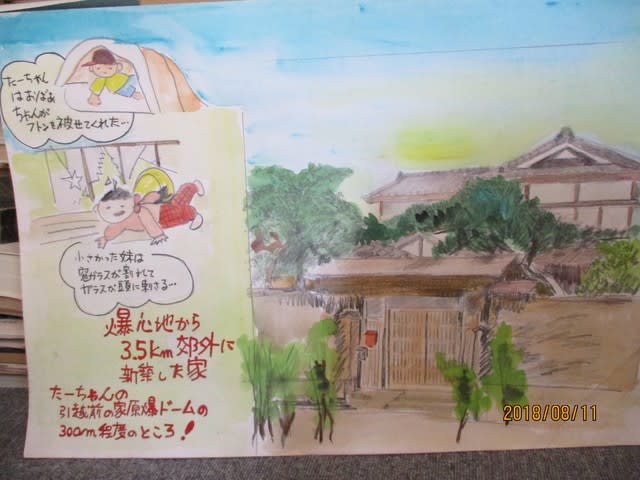 たーちゃん
はおばあ
ちゃんが
フトンを被せてくれた…
小さかった妹は
窓ガラスが割れして
ガラスが頭に刺さる…
爆心地から
3.5km郊外に
新築した家
たーちゃんの
引越前の家原爆ドームの
300m程度のところ!
2018/08/11